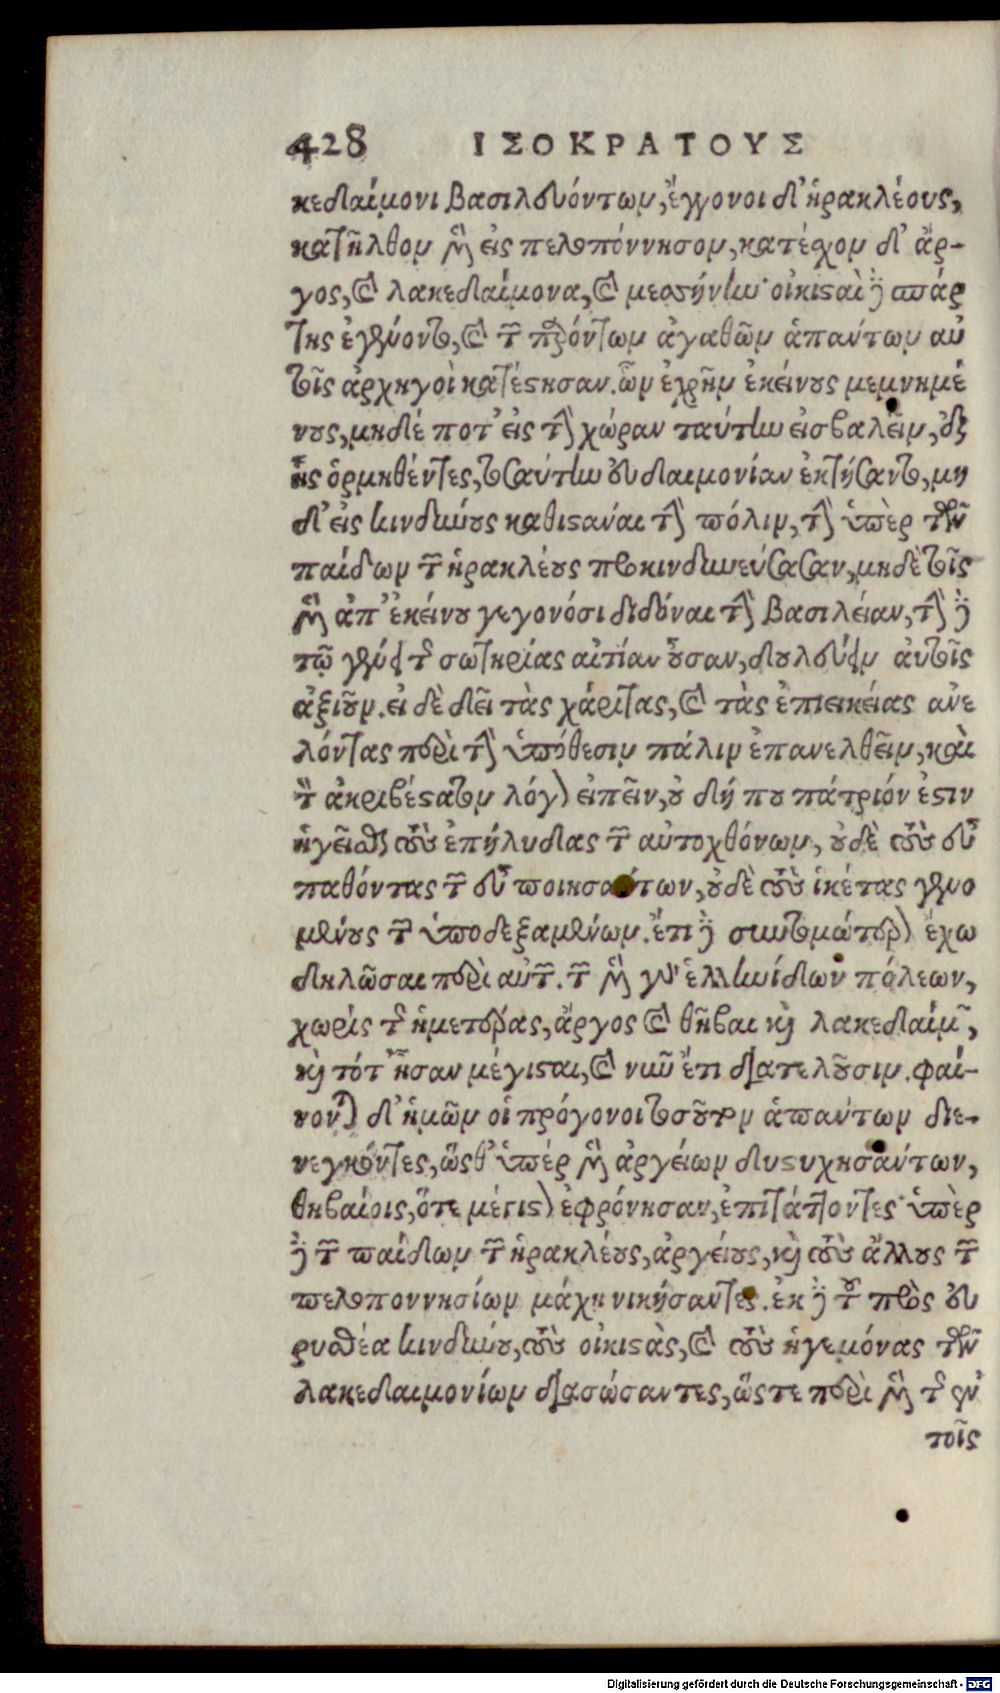 428 ΙΣΟΚΡΑΤΟΥΣ
κεδαίμονι βασιλευόντων, ἔγγονοι δ' ἡρακλέους,
κατῆλθον μὲν εἰς πελοπόννησον, κατέσχον δ' ἄρ-
γος, καὶ λακεδαίμονα, καὶ μεσσήνην· οἰκισταὶ δὲ σπάρ
της ἐγένοντο, καὶ τῶν παρόντων ἀγαθῶν ἁπάντων αὐ
τοῖς ἀρχηγοὶ κατέστησαν. ὧν ἐχρῆν ἐκείνους μεμνημέ
νους, μηδέ ποτ' εἰς τὴν χώραν ταύτην εἰσβαλεῖν, ἐξ
ἧς ὁρμηθέντες, τοσαύτην εὐδαιμονίαν ἐκτήσαντο, μη
δ' εἰς κινδύνους καθιστάναι τὴν πόλιν, τὴν ὑπὲρ τῶν
παίδων τῶν ἡρακλέους προκινδυνεύσασαν, μηδὲ τοῖς
μὲν ἀπ' ἐκείνου γεγονόσι διδόναι τὴν βασιλείαν, τὴν δὲ
τῷ γένει τῆς σωτηρίας αἰτίαν οὖσαν, δουλεύειν αὐτοῖς
ἀξιοῦν. εἰ δὲ δεῖ τὰς χάριτας, καὶ τὰς ἐπιεικείας ἀνε
λόντας περὶ τὴν ὑπόθεσιν πάλιν ἐπανελθεῖν, καὶ
τὸν ἀκριβέστατον λόγον εἰπεῖν, οὐ δή που πάτριόν ἐστιν
ἡγεῖσθαι τοὺς ἐπήλυδας τῶν αὐτοχθόνων, οὐδὲ τοὺς εὖ
παθόντας τῶν εὖ ποιησάντων, οὐδὲ τοὺς ἱκέτας γενο
μένους τῶν ὑποδεξαμένων. ἔτι δὲ συντομώτερον ἔχω
δηλῶσαι περὶ αὐτῶν. τῶν μὲν γὰρ ἑλληνίδων πόλεων,
χωρὶς τῆς ἡμετέρας, ἄργος καὶ θῆβαι καὶ λακεδαίμων,
καὶ τότ' ἦσαν μέγισται, καὶ νῦν ἔτι διατελοῦσιν. φαί-
νονται δ' ἡμῶν οἱ πρόγονοι τοσοῦτον ἁπάντων διε-
νεγκόντες, ὥσθ' ὑπὲρ μὲν ἀργείων δυστυχησάντων,
θηβαίοις, ὅτε μέγιστον ἐφρόνησαν, ἐπιτάττοντες· ὑπὲρ
δὲ τῶν παίδων τῶν ἡρακλέους, ἀργείους, καὶ τοὺς ἄλλους τῶν
πελοποννησίων μάχη νικήσαντες. ἐκ δὲ τοῦ πρὸς εὐ
ρυσθέα κινδύνου, τοὺς οἰκιστὰς, καὶ τοὺς ἡγεμόνας τῶν
λακεδαιμονίων διασώσαντες, ὥστε περὶ μὲν τῆς ἐν
τοῖς
Digitalisierung gefördert durch die Deutsche Forschungsgemeinschaft - DFG